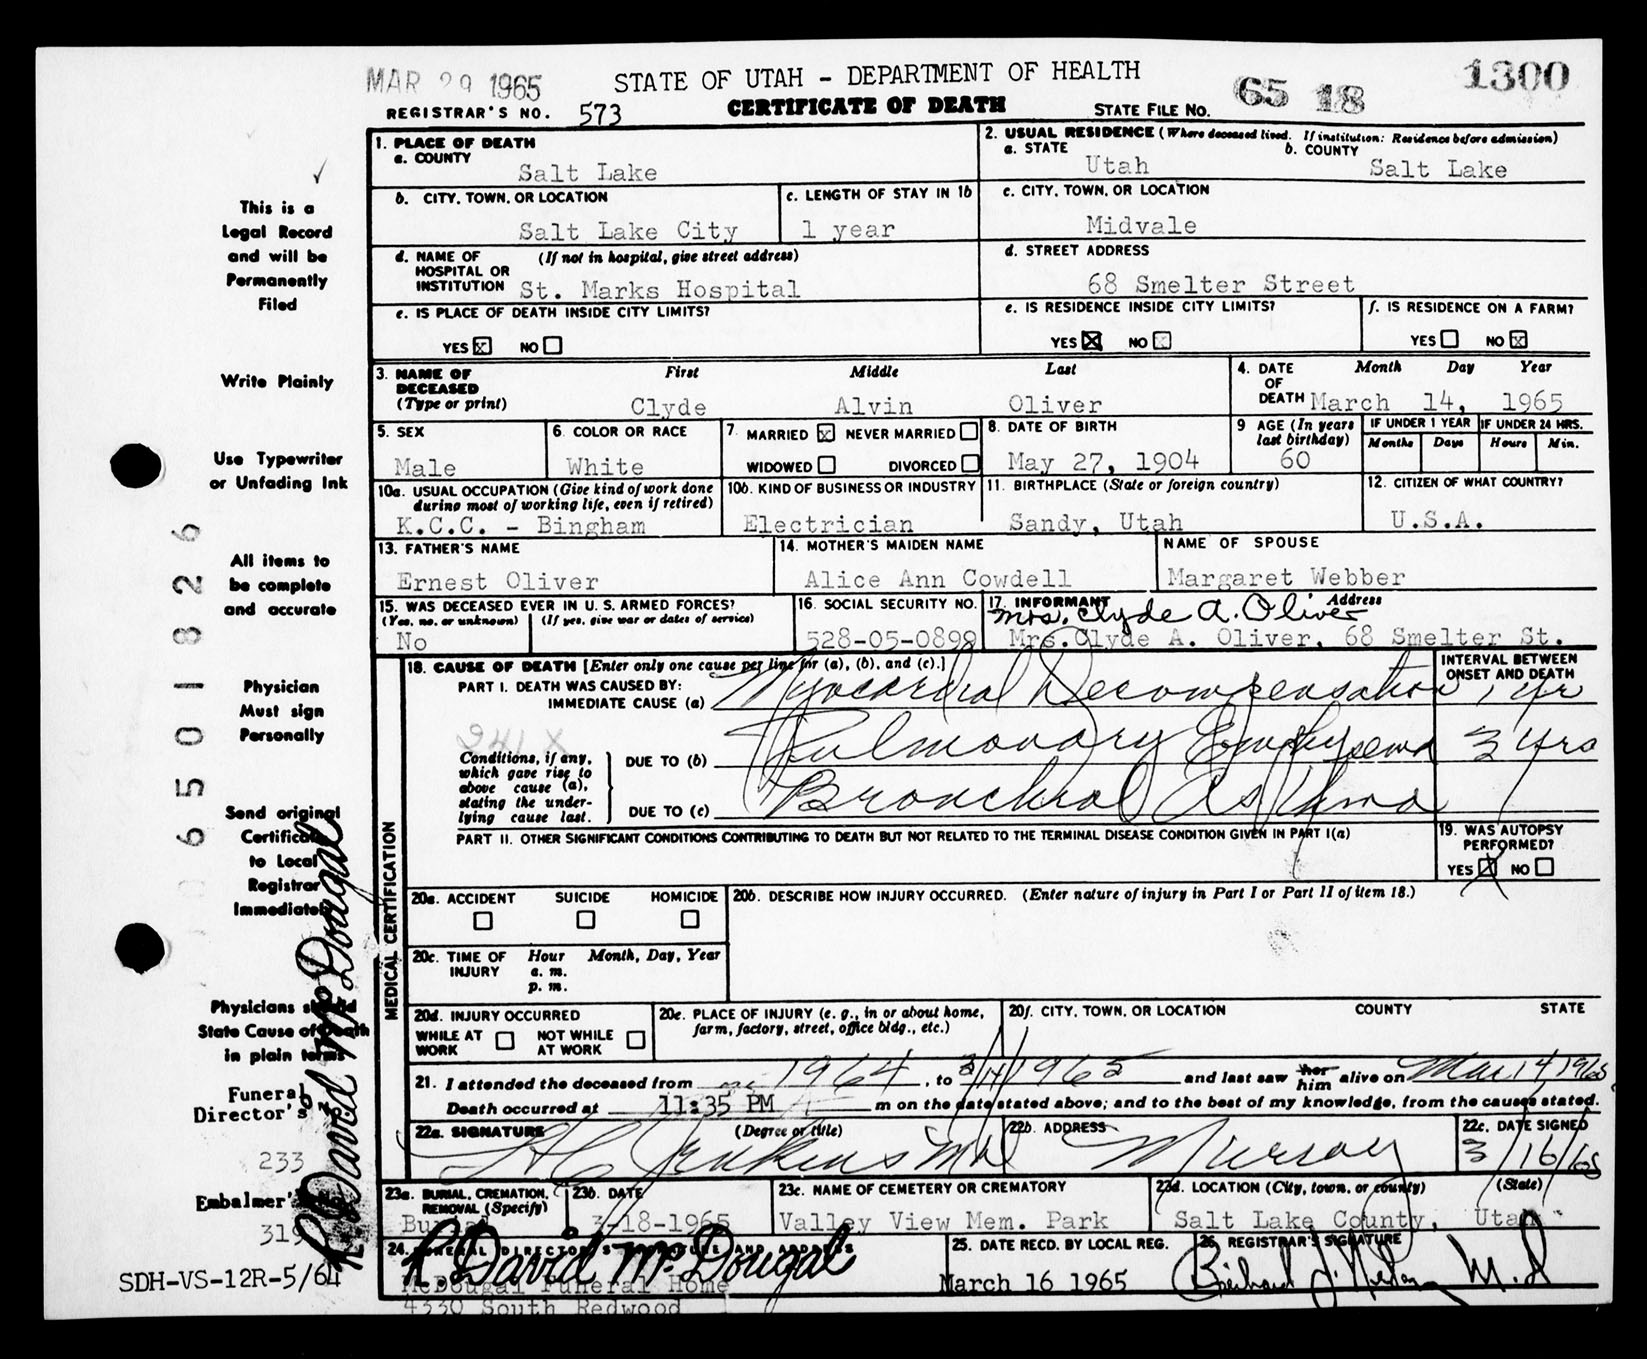 MAR 29 1965
STATE OF UTAH - DEPARTMENT OF HEALTH
65 18
1300
REGISTRAR'S NO. 573
CERTIFICATE OF DEATH
STATE FILE NO.
1. PLACE OF DEATH
a. COUNTY
Salt Lake
2. USUAL RESIDENCE (Where deceased lived. If institution: Residence before admission)
a. STATE
Utah
b. COUNTY
Salt Lake
b. CITY, TOWN, OR LOCATION
Salt Lake City
c. LENGTH OF STAY IN 1b
1 year
c. CITY, TOWN, OR LOCATION
Midvale
d. NAME OF HOSPITAL OR INSTITUTION
(If not in hospital, give street address)
St. Marks Hospital
d. STREET ADDRESS
68 Smelter Street
e. IS PLACE OF DEATH INSIDE CITY LIMITS?
YES x NO
e. IS RESIDENCE INSIDE CITY LIMITS?
YES X NO x
f. IS RESIDENCE ON A FARM?
YES NO x
3. NAME OF DECEASED
(Type or print)
First Middle Last
Clyde Alvin Oliver
4. DATE OF DEATH
Month Day Year
March 14, 1965
5. SEX
Male
6. COLOR OR RACE
White
7. MARRIED x NEVER MARRIED
WIDOWED DIVORCED
8. DATE OF BIRTH
May 27, 1904
9 AGE (In years last birthday)
60
IF UNDER 1 YEAR
Months Days
IF UNDER 24 HRS.
Hours Min.
10a. USUAL OCCUPATION (Give kind of work done during most of working life, even if retired)
K.C.C. - Bingham
10b. KIND OF BUSINESS OR INDUSTRY
Electrician
11. BIRTHPLACE (State or foreign country)
Sandy, Utah
12. CITIZEN OF WHAT COUNTRY?
U.S.A.
13. FATHER'S NAME
Ernest Oliver
14. MOTHER'S MAIDEN NAME
Alice Ann Cowdell
NAME OF SPOUSE
Margaret Webber
15. WAS DECEASED EVER IN U.S. ARMED FORCES?
(Yes, no, or unknown) (If yes, give war or dates of service)
No
16. SOCIAL SECURITY NO.
528-05-0899
17. INFORMANT Address
Mrs. Clyde A. Oliver
Mrs. Clyde A. Oliver, 68 Smelter St.
MEDICAL CERTIFICATION
18. CAUSE OF DEATH [Enter only one cause per line for (a), (b), and (c).]
INTERVAL BETWEEN ONSET AND DEATH
PART I. DEATH WAS CAUSED BY:
IMMEDIATE CAUSE (a) Myocardial Decompensation 1 yr
241 X
Conditions, if any, which gave rise to above cause (a), stating the underlying cause last.
DUE TO (b) Pulmonary Emphysema 3 yrs
DUE TO (c) Bronchial Asthma
PART II. OTHER SIGNIFICANT CONDITIONS CONTRIBUTING TO DEATH BUT NOT RELATED TO THE TERMINAL DISEASE CONDITION GIVEN IN PART I(a)
19. WAS AUTOPSY PERFORMED?
YES X NO
20a. ACCIDENT SUICIDE HOMICIDE
20b. DESCRIBE HOW INJURY OCCURRED. (Enter nature of injury in Part I or Part II of item 18.)
20c. TIME OF INJURY
Hour Month, Day, Year
a. m.
p. m.
20d. INJURY OCCURRED
WHILE AT WORK NOT WHILE AT WORK
20e. PLACE OF INJURY (e. g., in or about home, farm, factory, street, office bldg., etc.)
20f. CITY, TOWN, OR LOCATION COUNTY STATE
21. I attended the deceased from 1964, to 3/14/1965 and last saw her him alive on Mar 14 1965
Death occurred at 11:35 PM m on the date stated above; and to the best of my knowledge, from the causes stated.
22a. SIGNATURE (Degree or title)
Jenkins MD
22b. ADDRESS
Murray
22c. DATE SIGNED
3/16/65
23a. BURIAL, CREMATION, REMOVAL (Specify)
Burial
23b. DATE
3-18-1965
23c. NAME OF CEMETERY OR CREMATORY
Valley View Mem. Park
23d. LOCATION (City, town, or county) (State)
Salt Lake County, Utah
24. FUNERAL DIRECTOR'S SIGNATURE AND ADDRESS
R. David McDougal
McDougal Funeral Home
4330 South Redwood
25. DATE RECD. BY LOCAL REG.
March 16 1965
26. REGISTRAR'S SIGNATURE
M.D
This is a
Legal Record
and will be
Permanently
Filed
Write Plainly
Use Typewriter
or Unfading Ink
All items to
be complete
and accurate
Physician
Must sign
Personally
Send original
Certificate
to Local
Registrar
Immediately
Physicians should
State Cause of Death
in plain terms
Funeral
Director's
233
Embalmer's
319
R. David McDougal
6501826
SDH-VS-12R-5/64